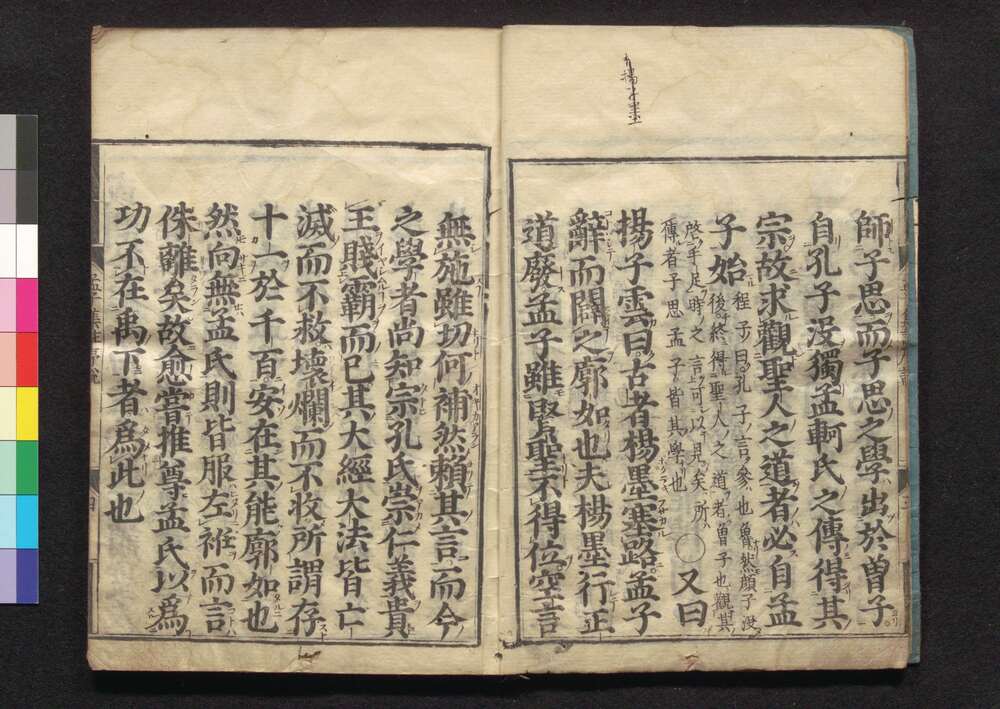 師子思而子思之學出於曾子
自孔子没獨孟軻氏之傳得其
宗故求觀聖人之道者必自孟
子始
程子曰孔子言參也魯然顔子没
後終得聖人之道者曾子也觀其
啓手足時之言可以見矣所
傳者子思孟子皆其學也
○又曰
揚子雲曰古者楊墨塞路孟子
辭而闢之廓如也夫楊墨行正
道廢孟子雖賢聖不得位空言
無施雖切何補然賴其言而今
之學者尚知宗孔氏崇仁義貴
王賤霸而已其大經大法皆亡
滅而不救壞爛而不收所謂存
十一於千百安在其能廓如也
然向無孟氏則皆服左袵而言
侏離矣故愈嘗推尊孟氏以爲
功不在禹下者爲此也